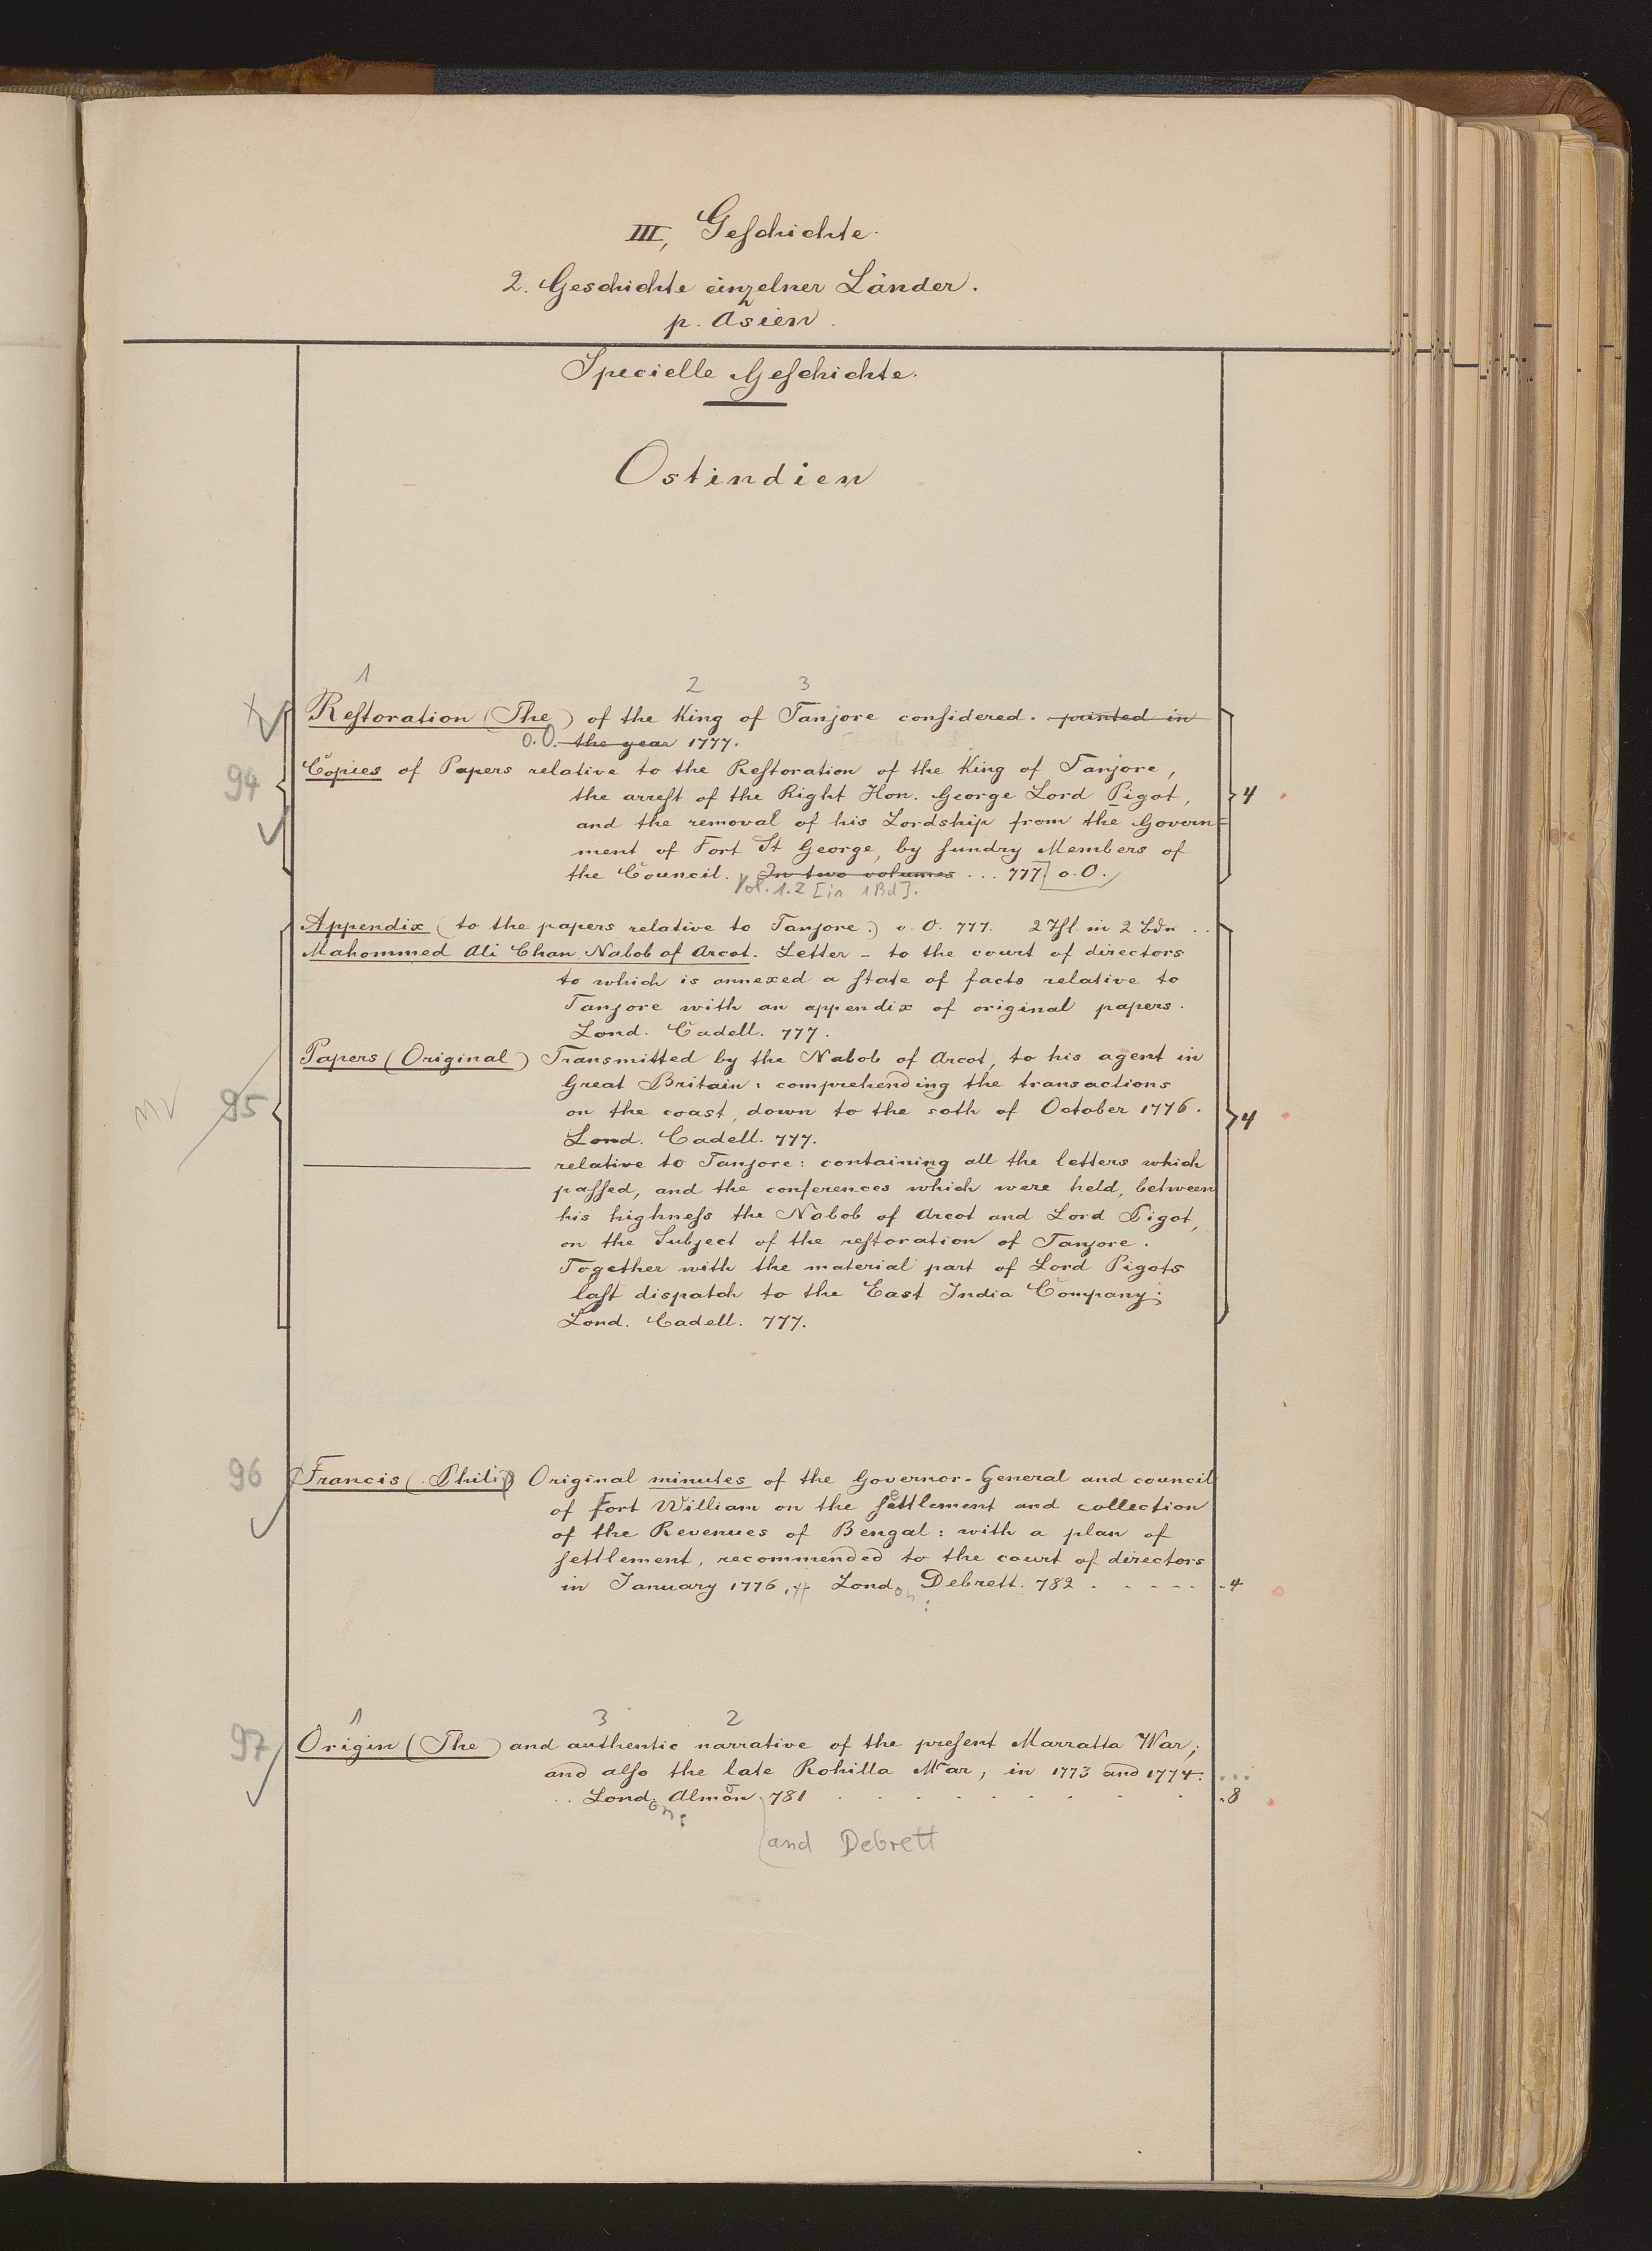 III, Geschichte.
2. Geschichte einzelner Länder.
p. Asien.
Specielle Geschichte.
Ostindien
1 2 3
Restoration (The) of the King of Tanjore considered. printed in
o. O. the year 1777.
94
Copies of Papers relative to the Restoration of the King of Tanjore,
the arrest of the Right Hon. George Lord Pigot, 4
and the removal of his Lordship from the Govern=
ment of Fort St George, by sundry Members of
the Council. In two volumes ... 777. o. O.
Vol. 1.2 [in 1 Bd].
Appendix (to the papers relative to Tanjore.) o. O. 777. 2 Thl. in 2 Bdn ..
Mahommed Ali Chan, Nabob of Arcot. Letter - to the court of directors
to which is annexed a state of facts relative to
Tanjore with an appendix of original papers.
Lond. Cadell. 777.
Papers (Original) Transmitted by the Nabob of Arcot, to his agent in
Great Britain: comprehending the transactions
95 on the coast, down to the 10th of October 1776. 4
Lond. Cadell. 777.
relative to Tanjore: containing all the letters which
passed, and the conferences which were held, between
his highness the Nabob of Arcot and Lord Pigot,
on the Subject of the restoration of Tanjore.
Together with the material part of Lord Pigots
last dispatch to the East India Company;
Lond. Cadell. 777.
96 Francis (Philip) Original minutes of the Governor-General and council
of Fort William on the settlement and collection
of the Revenues of Bengal: with a plan of
settlement, recommended to the court of directors
in January 1776. London: Debrett. 782 . . . . . 4
1 3 2
97 Origin (The) and authentic narrative of the present Marratta War;
and also the late Rohilla War, in 1773 and 1774. ...
London: Almon 781 . . . . . . . . 8
and Debrett